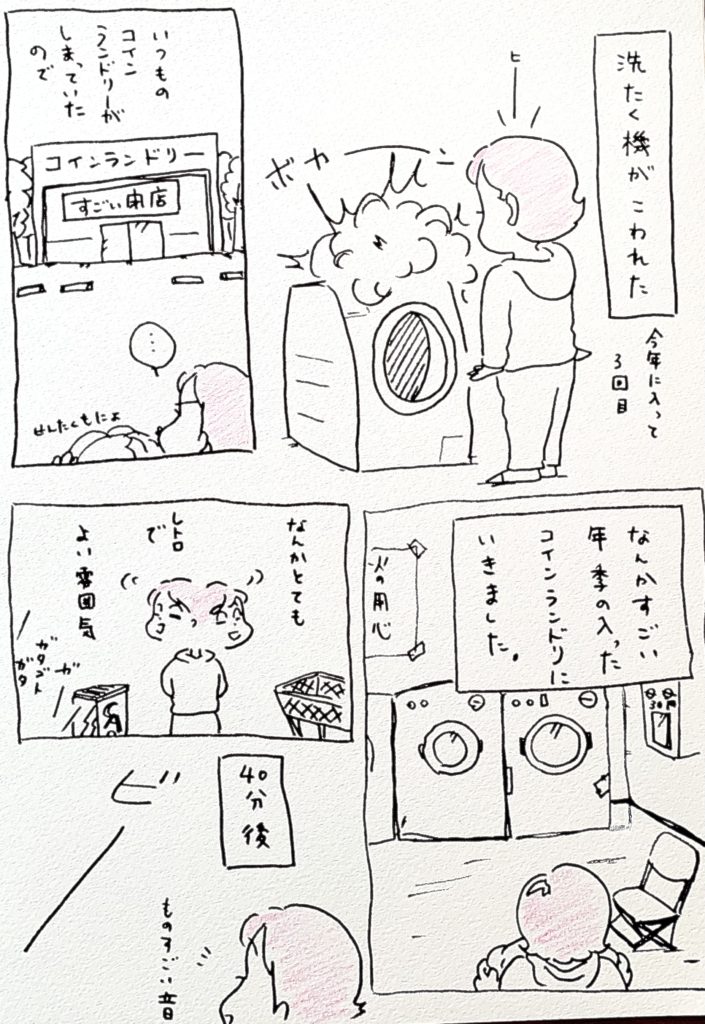 洗たく機がこわれた
今年に入って
3回目
ヒ
ボカーン
いつもの
コイン
ランドリーが
しまっていた
ので
コインランドリー
すごい閉店
…
せんたくもによ
なんかすごい
年季の入った
コインランドリに
いきました。
火の用心
30円
なんかとても
レトロ
で
よい雰囲気
ガ
ガタゴト
ガタ
40分後
ビー
ものすごい音